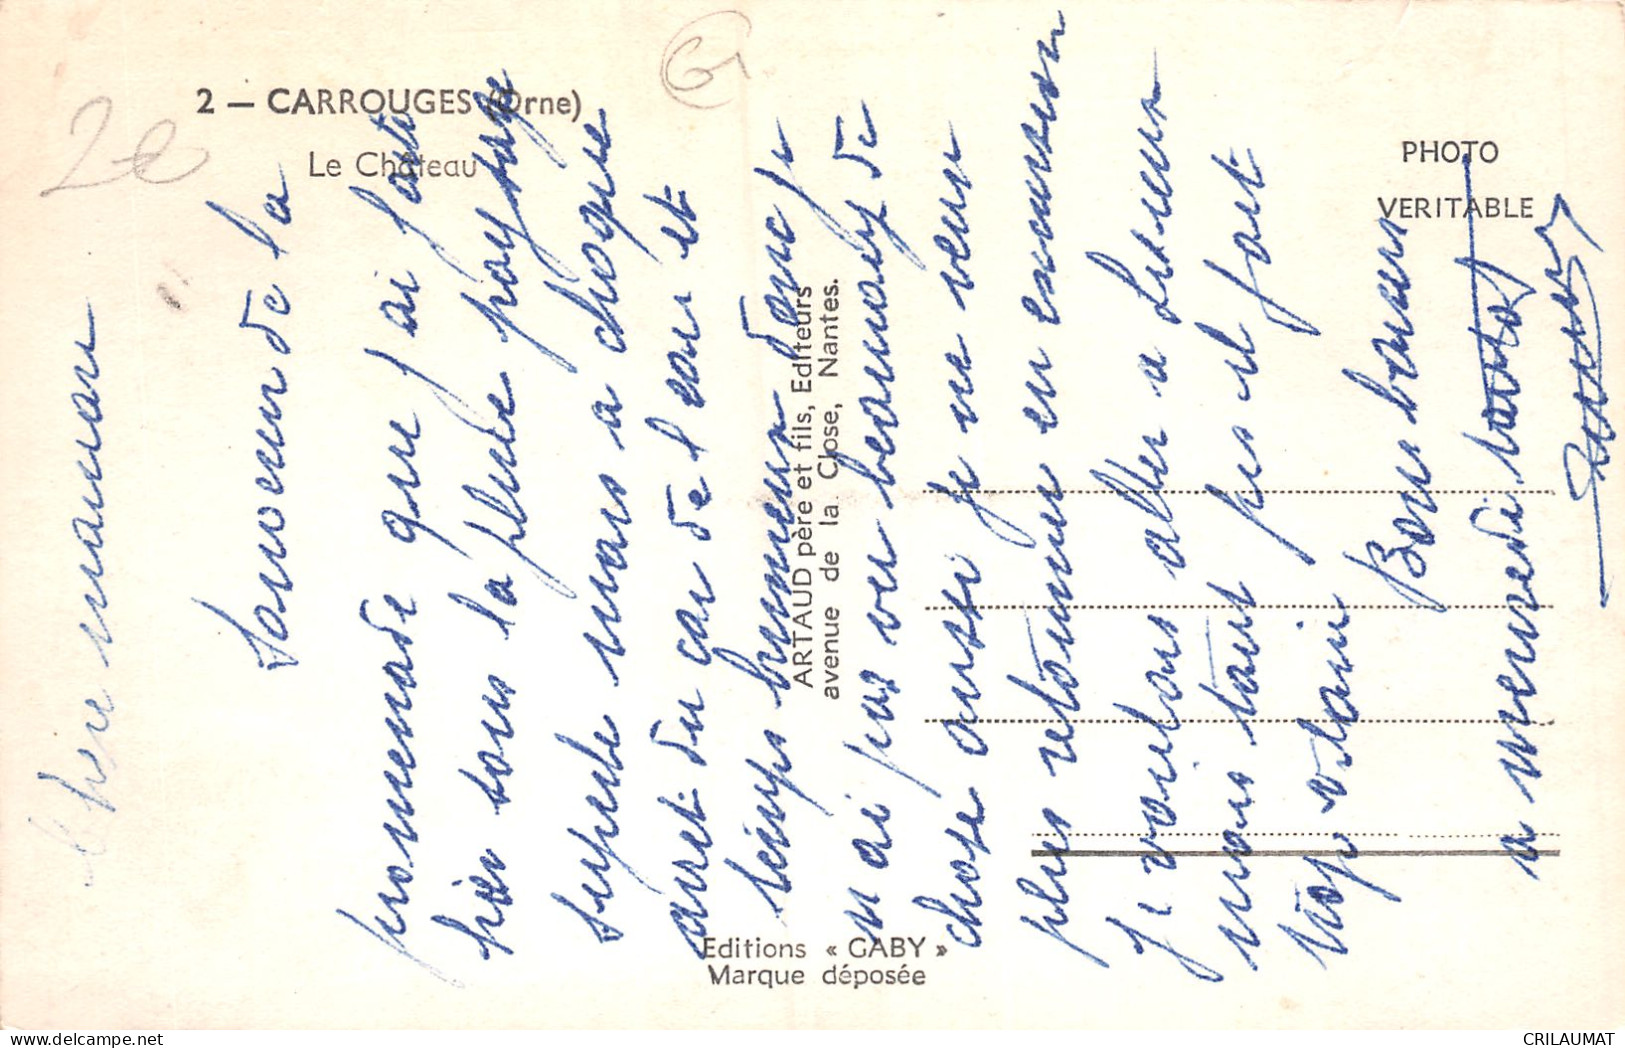 2 — CARROUGES (Orne)
Le Château
PHOTO
VERITABLE
2e
G
ARTAUD père et fils, Editeurs
avenue de la Close, Nantes.
Editions « GABY »
Marque déposée
Chère maman
Souvenir de la
promenade que j'ai faite
hier sous la pluie paysage
superbe mais a chaque
arret du car de l'eau et
temps brumeux donc je
n ai pas vu beaucoup de
chose aussi je ne veux
plus retourner en excursion
Je voulais aller a Lisieux
mais tant pis il fait
trop vilain
Bons baisers
a mercredi
CRILAUMAT